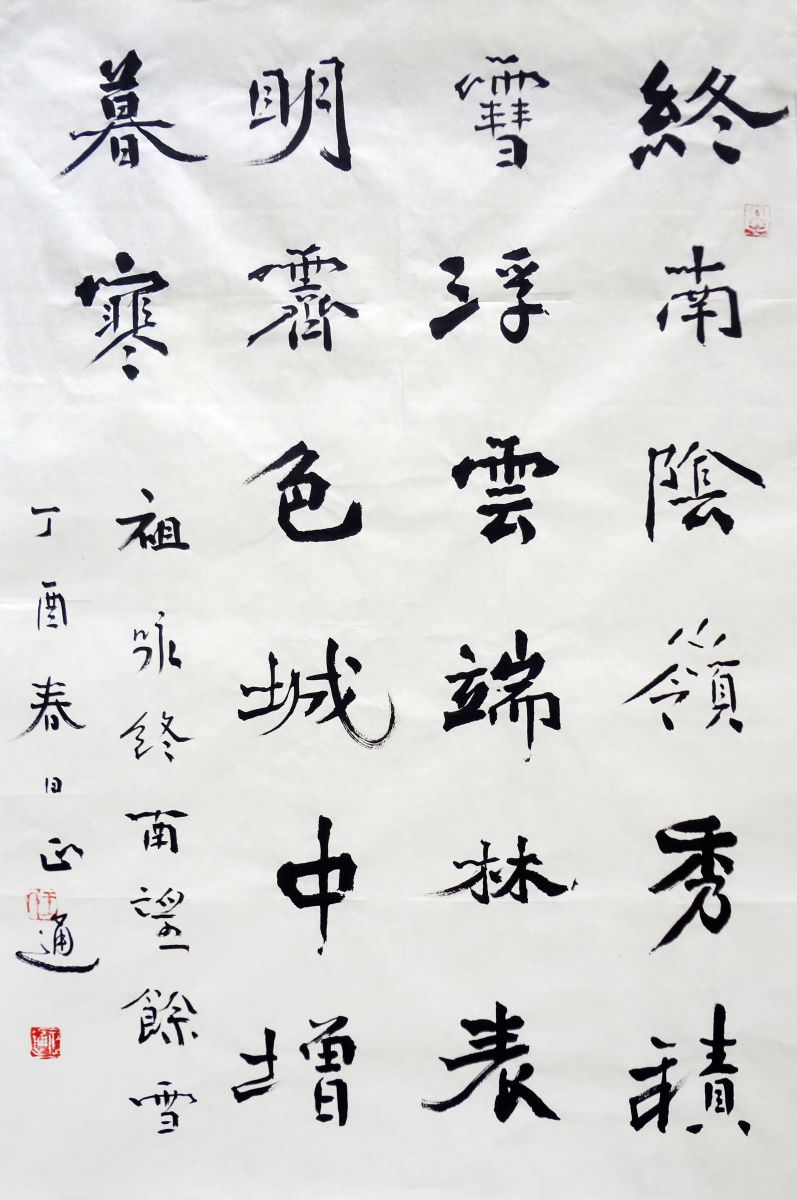 終南陰嶺秀積
雪浮雲端林表
明霽色城中增
暮寒
祖咏終南望餘雪
丁酉春日正通